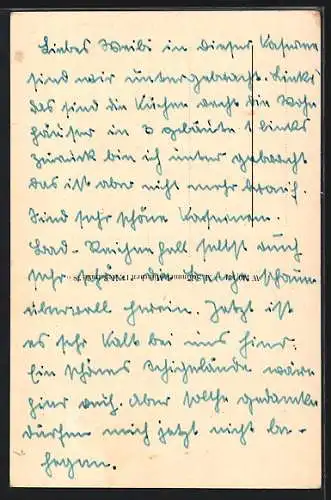 Liebes Weibi in dieser Kaserne
sind wir untergebracht. Links
das sind die Küchen recht die Wohn
häuser in 3 gebäute 1 links
zurück bin ich unter gebracht
das ist aber nicht mehr drauf.
Sind sehr schöne Kasernen.
Bad-Reichenhall selbst auch
sehr schön die Berge schauen
überall herein. Jetzt ist
es sehr Kalt bei uns hier.
Ein schönes Schigelände wäre
hier auch. Aber solche gedanken
dürfen mich jetzt nicht be-
hegen.